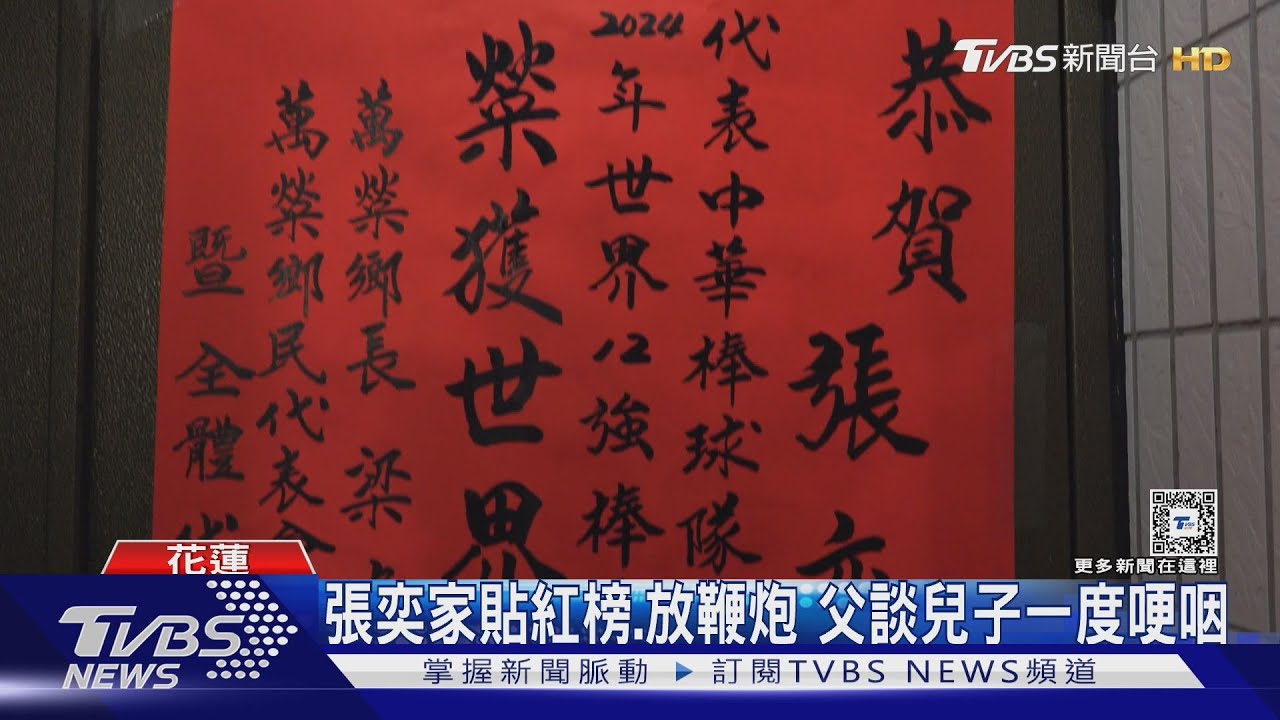 恭賀 張
代表中華棒球隊
2024年世界12強棒
榮獲世界
萬榮鄉長 梁
萬榮鄉民代表
暨全體
TVBS新聞台 HD
TVBS
更多新聞在這裡
花蓮
張奕家貼紅榜.放鞭炮 父談兒子一度哽咽
TVBS NEWS
掌握新聞脈動 ▶ 訂閱TVBS NEWS頻道